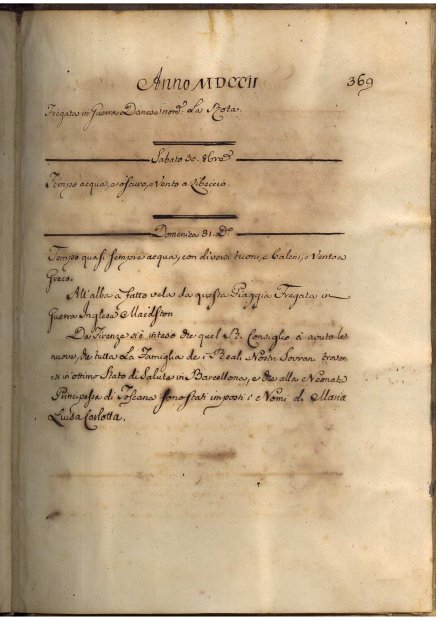 Anno MDCCII
369
Fregata in Guerra Danese nom.ª La Rota.
Sabato 30. 8bre
Tempo acqua, e oscuro, e Vento a Libeccio.
Domenica 31. D.º
Tempo quasi sempre acqua, con diversi tuoni, e baleni, e Vento a
Greco.
All'alba a fatto vela da questa Piaggia Fregata in
Guerra Inglese Maidston
Da Firenze si è inteso che quel R. Consiglio à avuto le
nuove, che tutta La Famiglia de i Reali Nostri Sovrani trovan
si in ottimo Stato di Salute in Barcellona, e che alla Neonata
Principessa di Toscana sono stati imposti i Nomi di Maria
Luisa Carlotta.